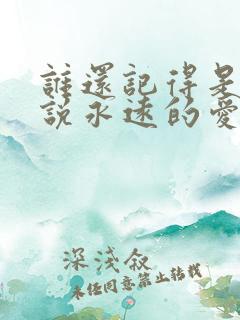 誰還記得是
說永遠的愛
深淺叙
未經同意禁止轉載